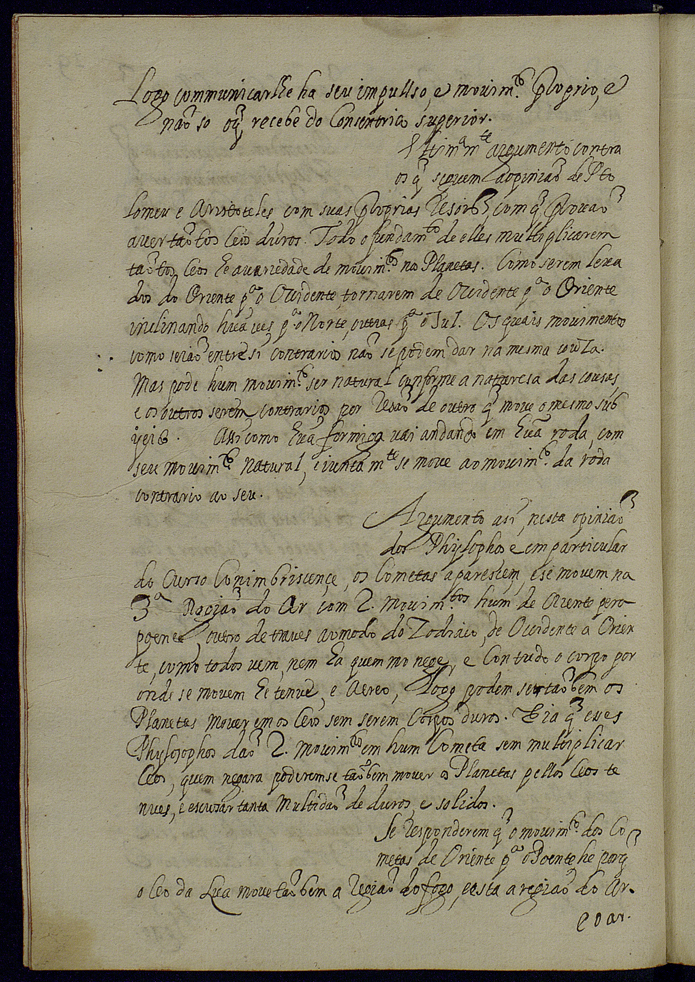 Logo communicarlhe ha seu impullso, e movim.to proprio, e
não so o q̃ recebe do Consentrico superior.
Ultimam.te argumento contra
os q̃ seguem a opinião de Pto
lomeu e Aristoteles com suas proprias resões, com q̃ provão
aver tãotos Ceos duros. Todo o fundam.to de elles multiplicarem
tãotos Ceos he a variedade de movim.tos nos Planetas. Como serem leva
dos do Oriente p.a o Occidente, tornarem de Occidente p.a o Oriente
inclinando hũa ves p.a o Norte, outras p.a o Sul. Os quais movimentos
como seião entre si contrarios não se podem dar na mesma couza.
Mas pode hum movim.to ser natural conforme a naturesa das cousas,
e os outros serem contrarios por resão de outro q̃ move o mesmo sub
geito. Assi como hũa formiga vai andando em hũa roda, com
seu movim.to natural, e iuntam.te se move ao movim.to da roda
contrario ao seu.
Argumento asi, nesta opinião
dos Phylosophos e em particular
do Curso Conimbriscence, os Cometas aparessem, e se movem na
3.a Região do Ar com 2. movim.tos hum de Oriente pera
poente, outro de traves ao modo do Zodiaco, de Occidente a Orien
te, como todos vem, nem ha quem mo nege, e Contudo o corpo por
onde se movem he tenue, e Aereo, Logo podem ser tãobem os
Planetas moverem os Ceos sem serem Corpos duros. E ia q̃ esses
Phylosophos dão 2. movim.tos em hum Cometa sem multiplicar
Ceos, quem negara poderemse tãobem mover os Planetas pellos Ceos te
nues, e escusar tanta multidão de duros, e solidos.
Se responderem q̃ o movim.to dos Co
metas de Oriente p.a o Poente he porq̃
o Ceo da Lua move tãobem a Região do fogo, e esta a região do Ar.
e o ar.